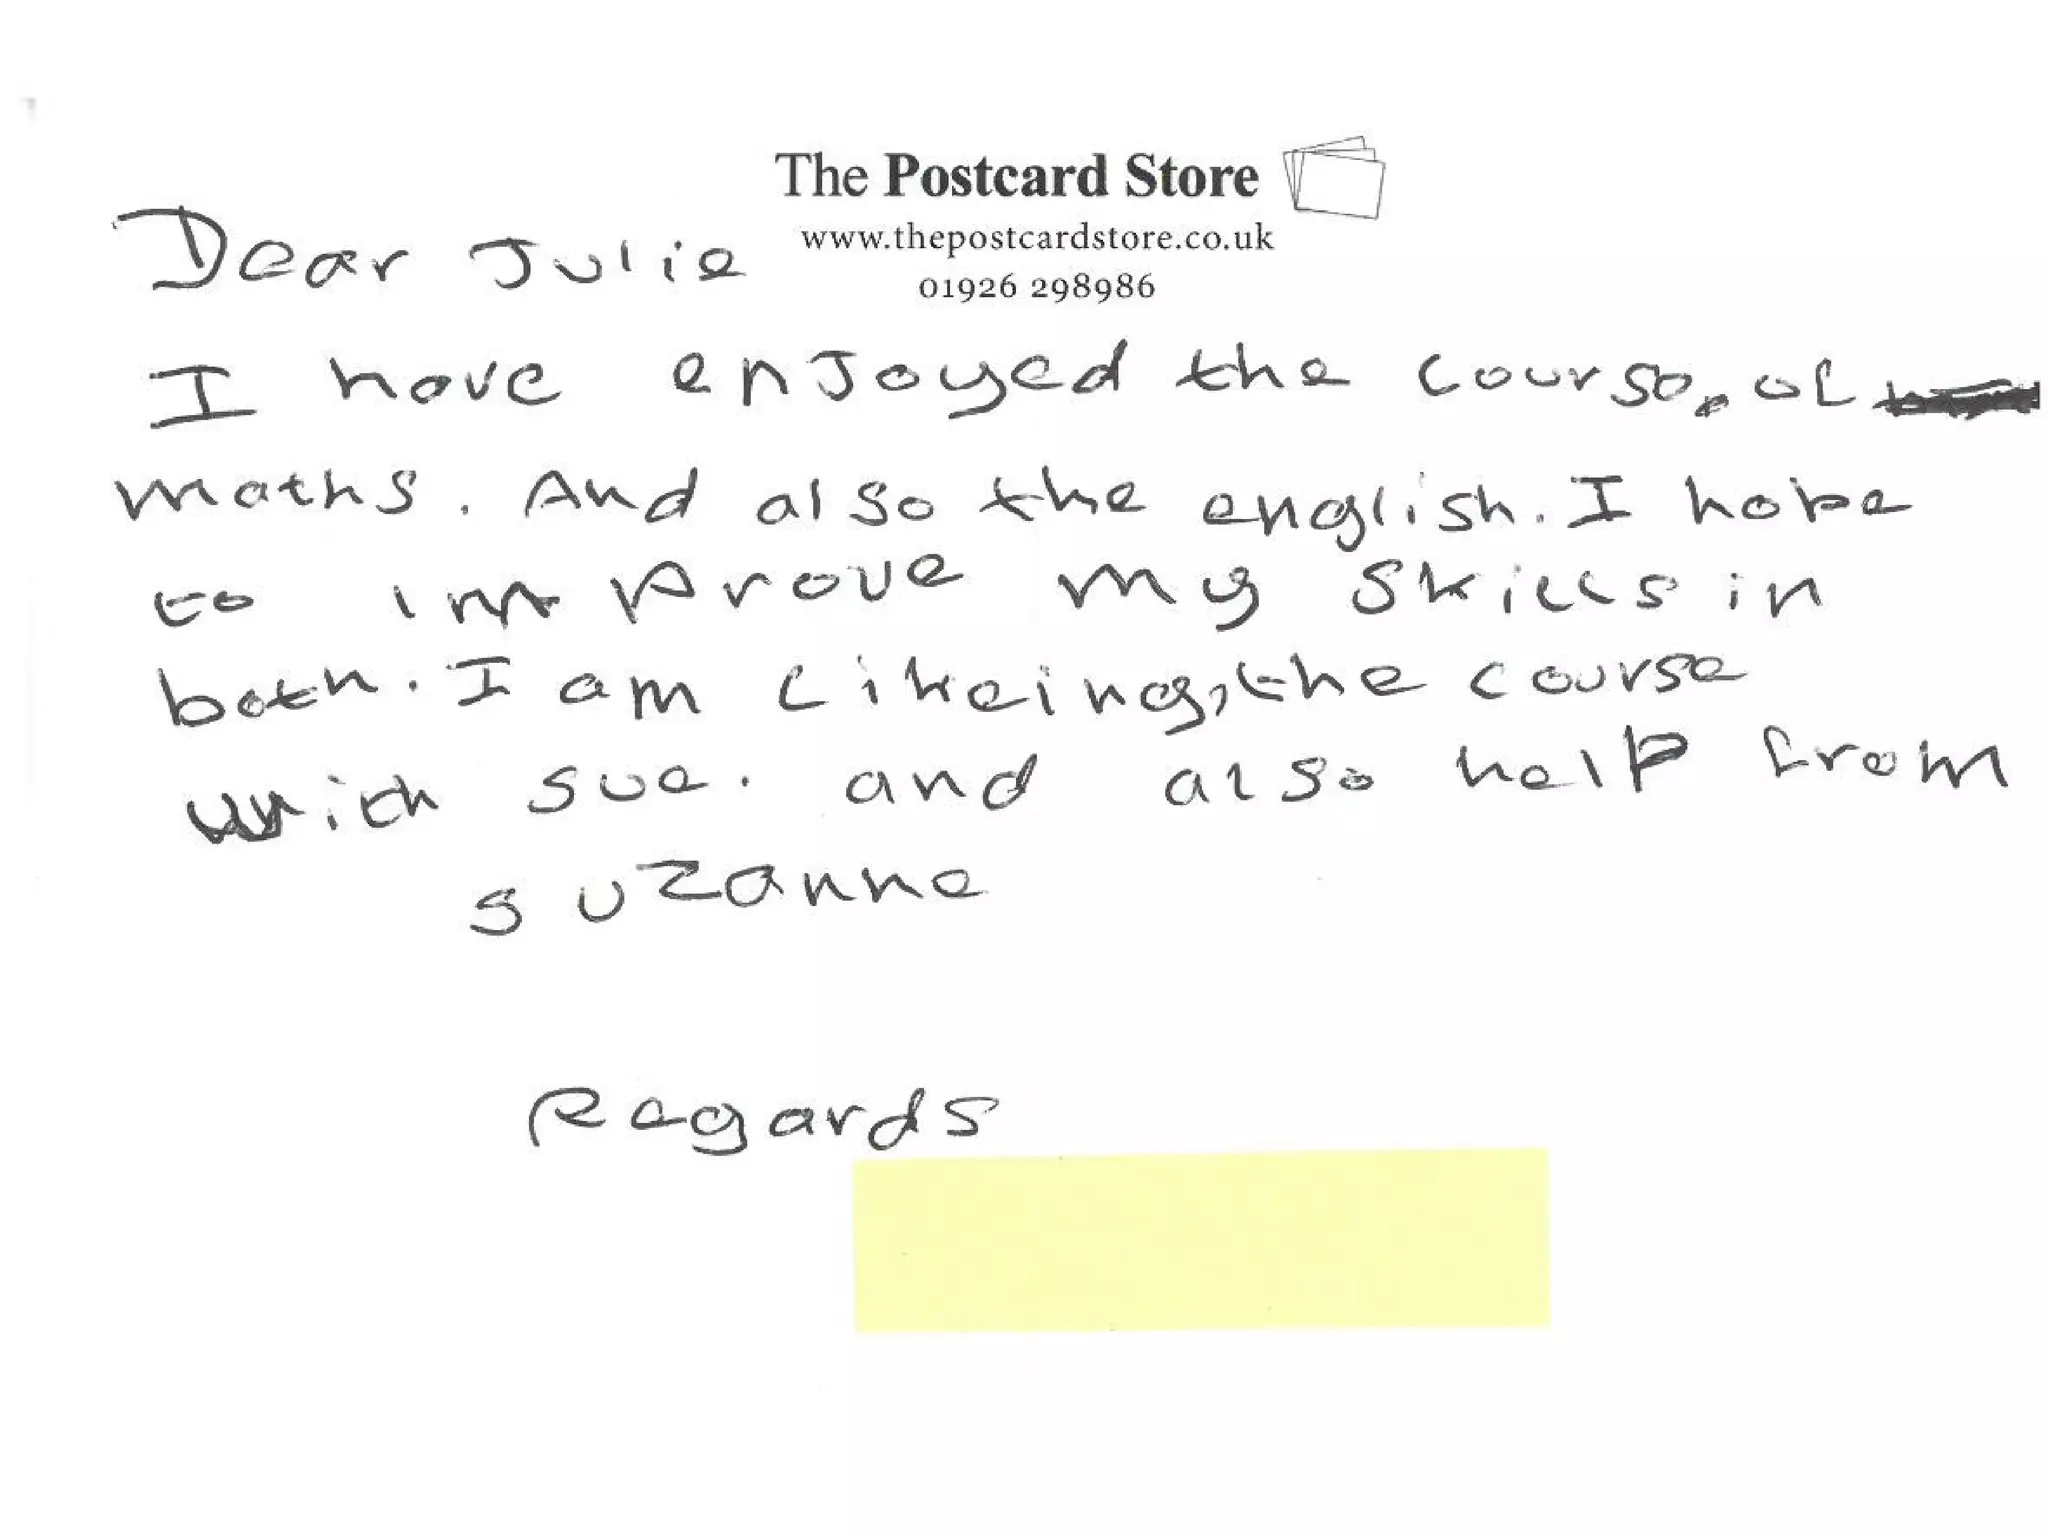 The Postcard Store
www.thepostcardstore.co.uk
01926 298986
Dear Julie
I have enjoyed the course. of
maths. And also the english. I hope
to improve my skills in
both. I am likeing, the course
with sue. and also help from
suzanne
Regards